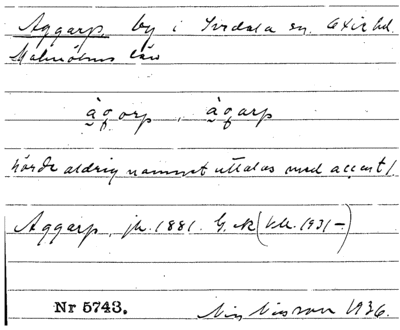 Aggarp, by i Svedala sn. Oxie hd.
Malmöhus län
àgorp, àgarp
hörde aldrig namnet uttalas med accent 1.
Aggarp, jb. 1881. G. K
Nr 5743. Nils Nilsson 1936.